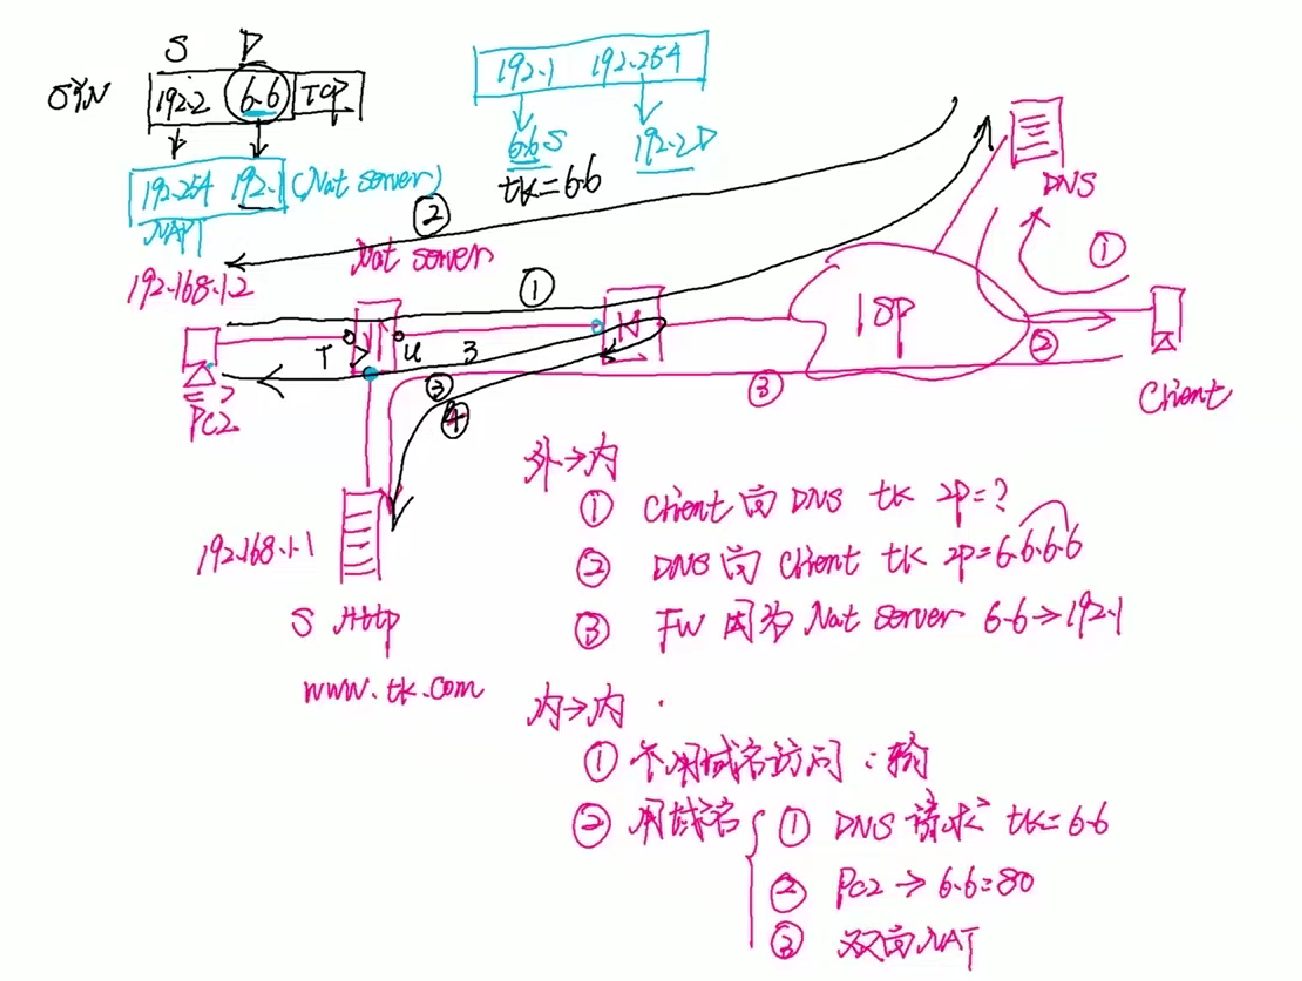 S D
SYN 192.2 6.6 TCP
192.254 192.1 (Nat server)
NAPT
192.1 192.254
6.6 S 192.2 D
tk=6.6
DNS
②
Nat server
192.168.1.2
①
①
ISP
②
T D U 3
③
④
③
PC2
Client
192.168.1.1
S Http
www.tk.com
外→内
① Client 向 DNS tk IP=?
② DNS 向 Client tk IP=6.6.6.6
③ FW 因为 Nat server 6.6→192.1
内→内
① 不用域名访问:
② 用域名
① DNS 请求 tk=6.6
② PC2→6.6:80
③ 双向NAT